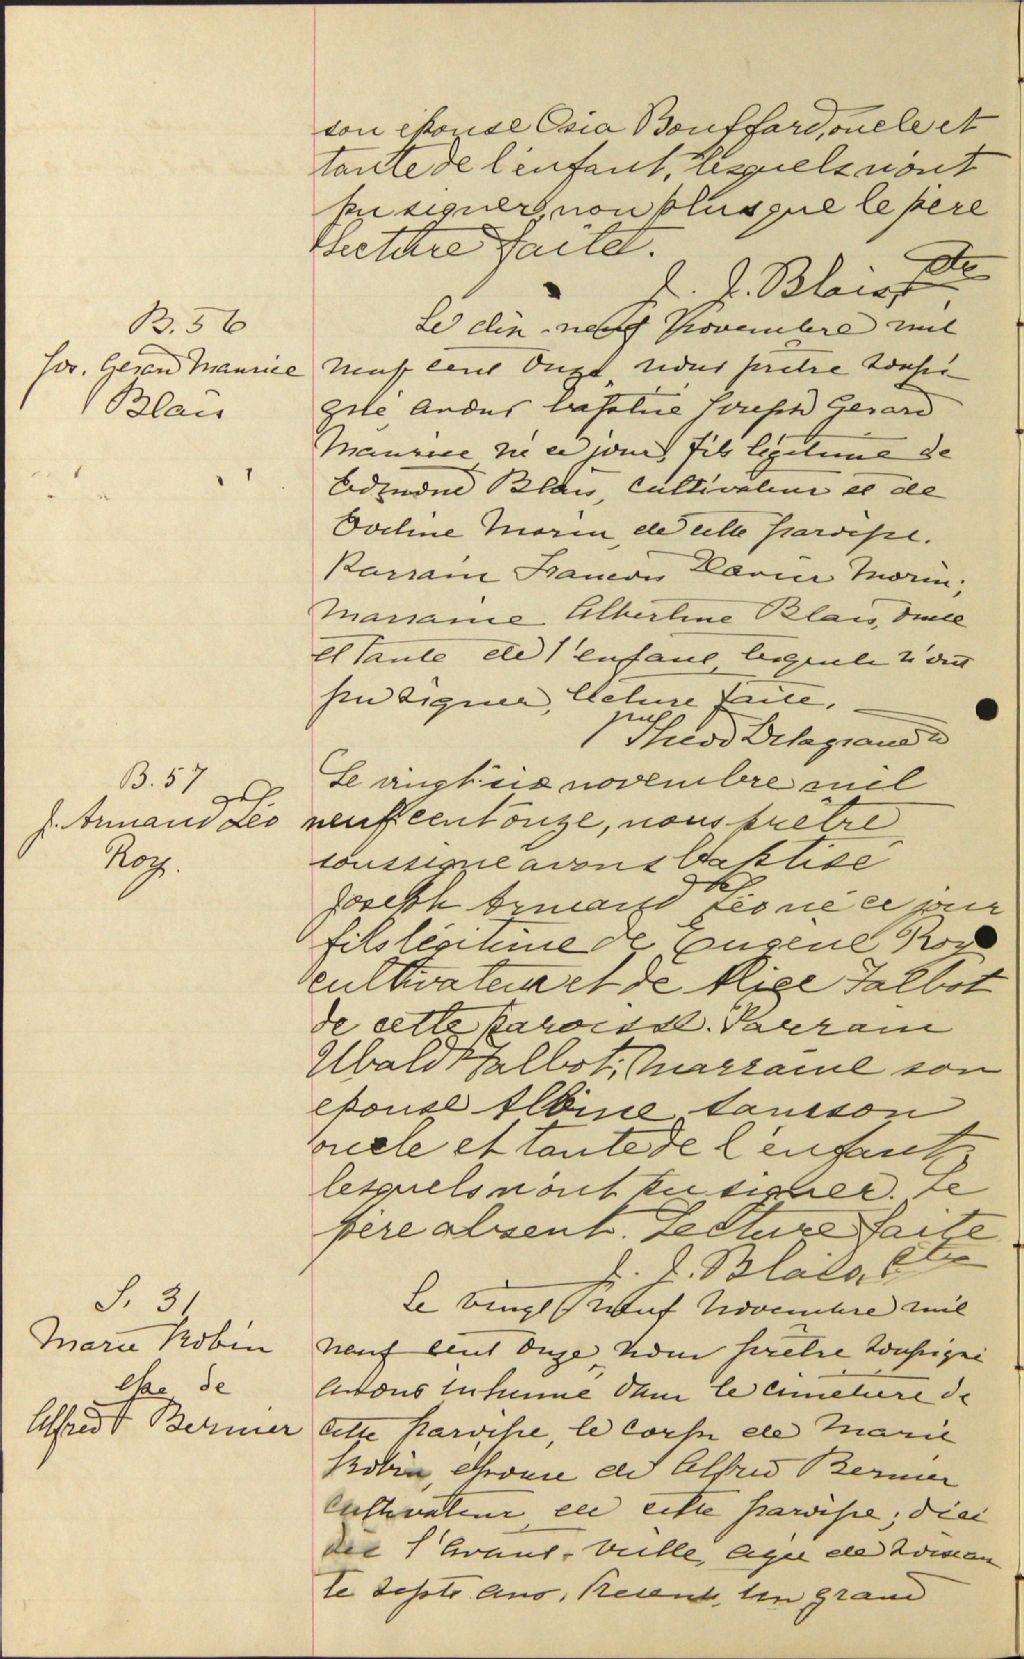 son épouse Osia Bouffard, oncle et
tante de l'enfant, lesquels n'ont
pu signer, non plus que le père
Lecture faite.
J. J. Blais, Ptre
B. 56
Jos. Gerard Maurice
Blais
Le dix-neuf Novembre mil
neuf cent onze nous prêtre soussi
gné avons baptisé Joseph Gerard
Maurice, né ce jour, fils légitime de
Edmond Blais, cultivateur et de
Eveline Morin, de cette paroisse.
Parrain Francois Xavier Morin;
Marraine Albertine Blais, oncle
et tante de l'enfant, lesquels n'ont
pu signer, lecture faite.
Theod Delagrave
B. 57
J. Armand Léo
Roy.
Le vingt-six novembre mil
neuf cent onze, nous prêtre
soussigné avons baptisé
Joseph Armand Léo né ce jour
fils légitime de Eugène Roy
cultivateur et de Alice Talbot
de cette paroisse. Parrain
Ubald Talbot; Marraine son
épouse Albine Samson
oncle et tante de l'enfant,
lesquels n'ont pu signer. Le
père absent. Lecture faite
J. J. Blais, Ptre
S. 31
Marie Robin
épse de
Alfred Bernier
Le vingt neuf Novembre mil
neuf cent onze, nous prêtre soussigné
avons inhumé dans le cimetière de
cette paroisse, le corps de Marie
Robin, épouse de Alfred Bernier
cultivateur, de cette paroisse; décé
dée l'avant-veille, agée de soixan
te sept ans. Présents, un grand